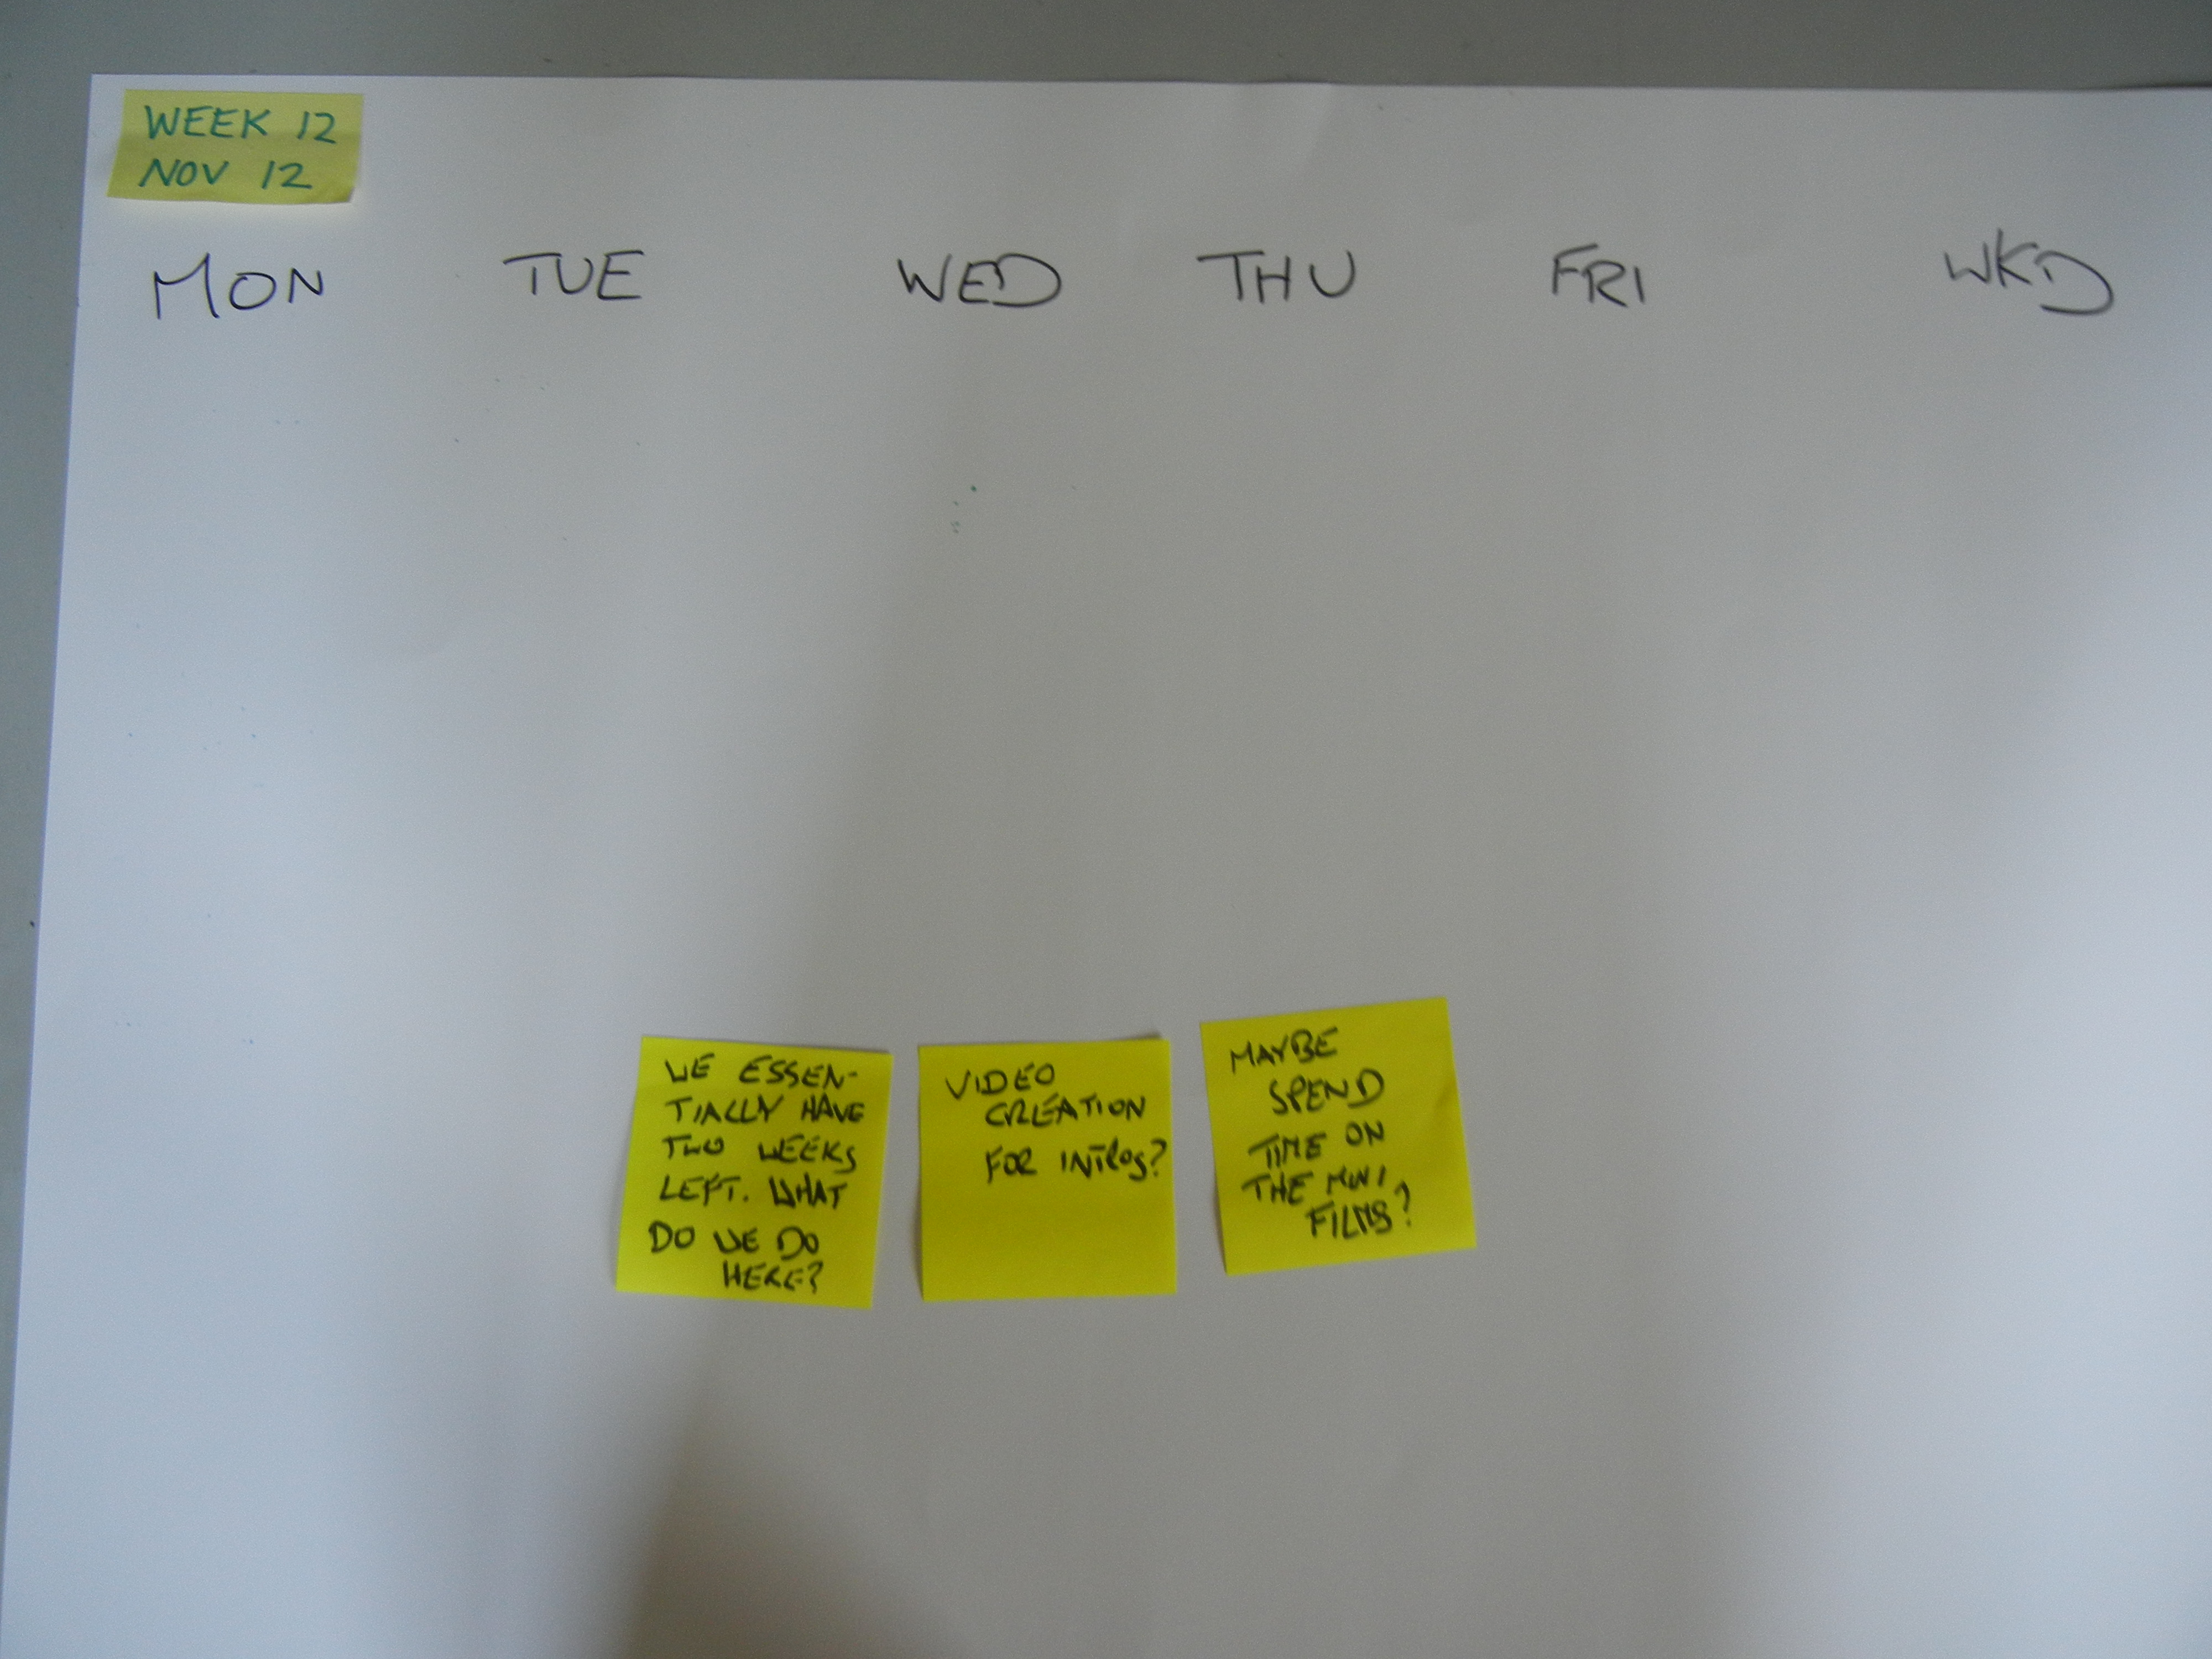 WEEK 12
NOV 12
MON TUE WED THU FRI WKD
WE ESSEN-
TIALLY HAVE
TWO WEEKS
LEFT. WHAT
DO WE DO
HERE?
VIDEO
CREATION
FOR INTROS?
MAYBE
SPEND
TIME ON
THE MINI
FILMS?